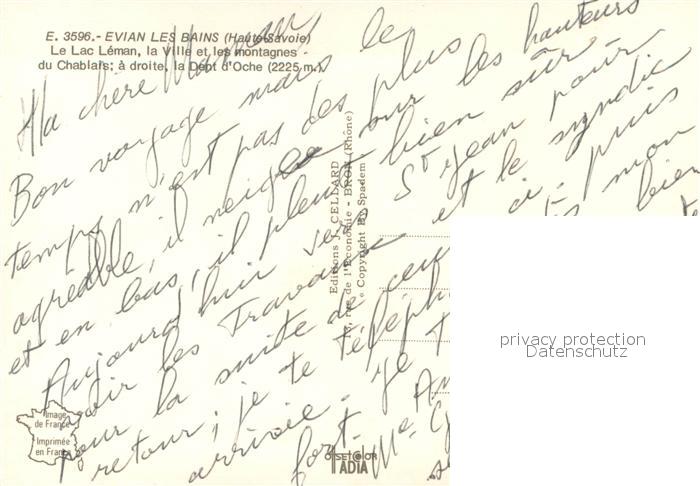 E. 3596.- EVIAN LES BAINS (Haute-Savoie)
Le Lac Léman, la Ville et les montagnes
du Chablais; à droite, la Dent d'Oche (2225 m.)
Ma chère Maman
Bon voyage mais le
temps n'est pas des plus
agréable, il neige sur les hauteurs
et en bas, il pleut bien sûr
Aujourd'hui vers St Jean pour
voir les Travaux et le syndic
pour la suite de puis
retour, je te téléph mon
arrivée. Je t bien
fort.
Editions J. CELLARD
rue de l'Economie - BRON (Rhône)
Copyright By Spadem
Image
de France
Imprimée
en France
OFFSETCOLOR
IADIA
privacy protection
Datenschutz